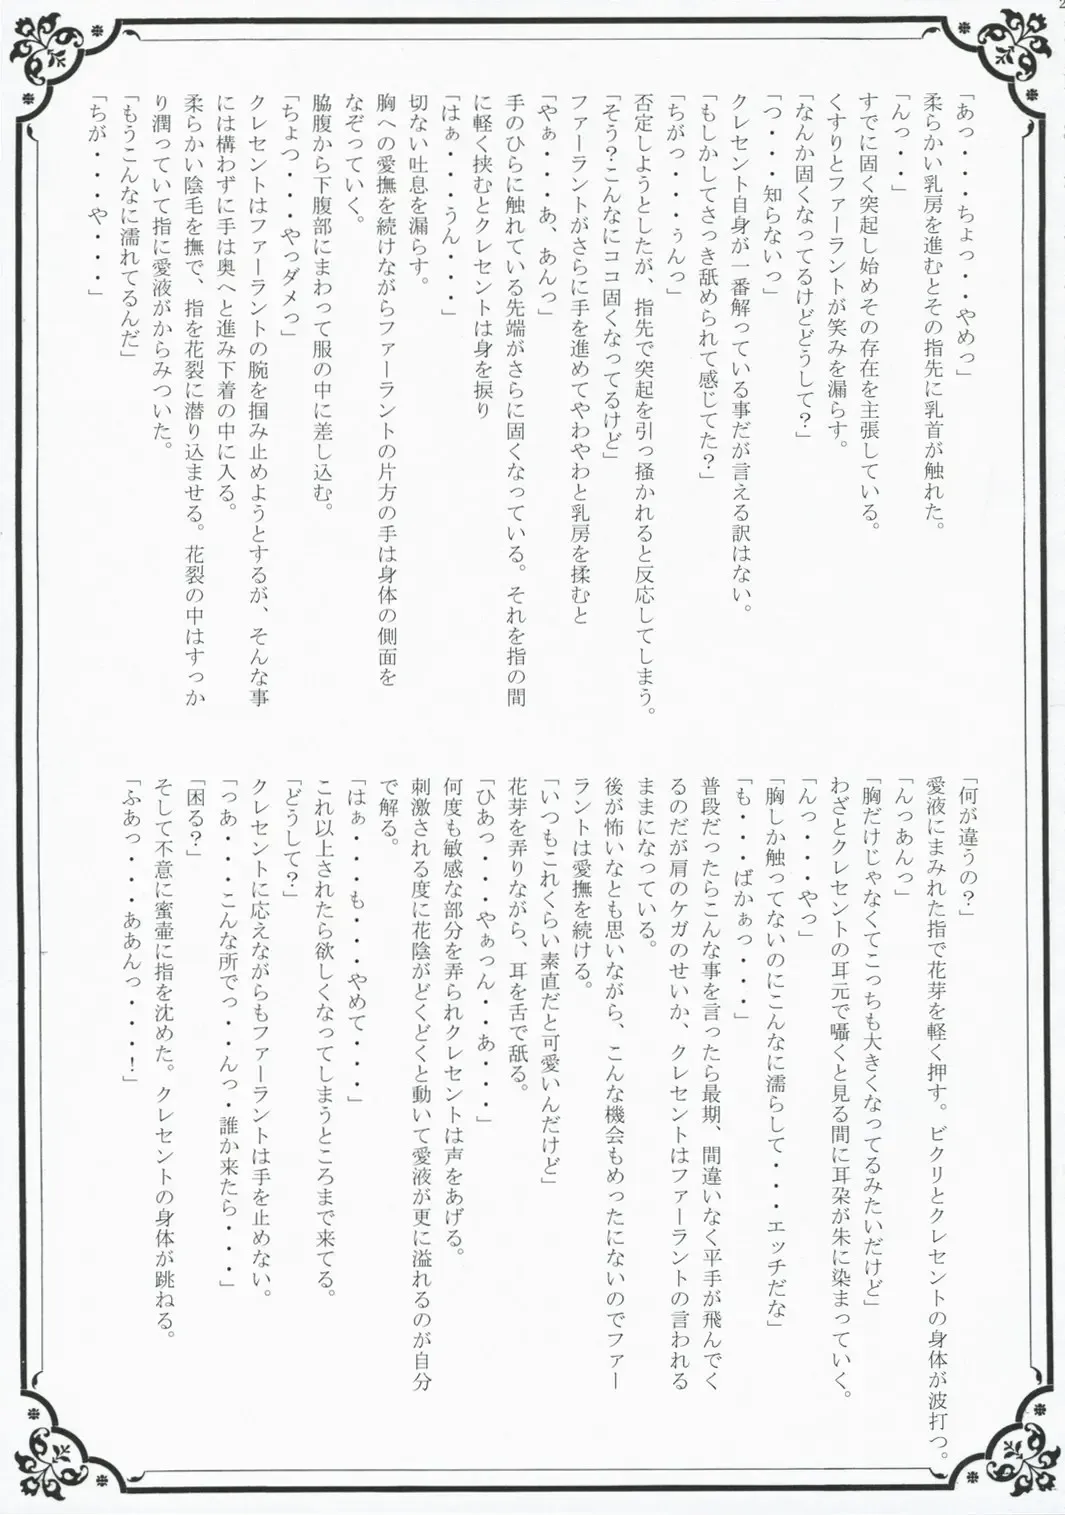 「あっ・・・ちょっ・・やめっ」
柔らかい乳房を進むとその指先に乳首が触れた。
「んっ・・」
すでに固く突起し始めその存在を主張している。
くすりとファーラントが笑みを漏らす。
「なんか固くなってるけどどうして？」
「っ・・・知らないっ」
クレセント自身が一番解っている事だが言える訳はない。
「もしかしてさっき舐められて感じてた？」
「ちがっ・・・ぅんっ」
否定しようとしたが、指先で突起を引っ掻かれると反応してしまう。
「そう？こんなにココ固くなってるけど」
ファーラントがさらに手を進めてやわやわと乳房を揉むと
「やぁ・・・あ、あんっ」
手のひらに触れている先端がさらに固くなっている。それを指の間
に軽く挟むとクレセントは身を捩り
「はぁ・・・うん・・・」
切ない吐息を漏らす。
胸への愛撫を続けながらファーラントの片方の手は身体の側面を
なぞっていく。
脇腹から下腹部にまわって服の中に差し込む。
「ちょっ・・・やっダメっ」
クレセントはファーラントの腕を掴み止めようとするが、そんな事
には構わずに手は奥へと進み下着の中に入る。
柔らかい陰毛を撫で、指を花裂に潜り込ませる。花裂の中はすっか
り潤っていて指に愛液がからみついた。
「もうこんなに濡れてるんだ」
「ちが・・・や・・・」
「何が違うの？」
愛液にまみれた指で花芽を軽く押す。ビクリとクレセントの身体が波打つ。
「んっあんっ」
「胸だけじゃなくてこっちも大きくなってるみたいだけど」
わざとクレセントの耳元で囁くと見る間に耳朶が朱に染まっていく。
「んっ・・・やっ」
「胸しか触ってないのにこんなに濡らして・・・エッチだな」
「も・・・ばかぁっ・・・」
普段だったらこんな事を言ったら最期、間違いなく平手が飛んでく
るのだが肩のケガのせいか、クレセントはファーラントの言われる
ままになっている。
後が怖いなとも思いながら、こんな機会もめったにないのでファー
ラントは愛撫を続ける。
「いつもこれくらい素直だと可愛いんだけど」
花芽を弄りながら、耳を舌で舐る。
「ひあっ・・・やぁっん・・あ・・・」
何度も敏感な部分を弄られクレセントは声をあげる。
刺激される度に花陰がどくどくと動いて愛液が更に溢れるのが自分
で解る。
「はぁ・・・も・・・やめて・・・」
これ以上されたら欲しくなってしまうところまで来てる。
「どうして？」
クレセントに応えながらもファーラントは手を止めない。
「っあ・・・こんな所でっ・・んっ・誰か来たら・・・」
「困る？」
そして不意に蜜壷に指を沈めた。クレセントの身体が跳ねる。
「ふあっ・・・ああんっ・・・！」